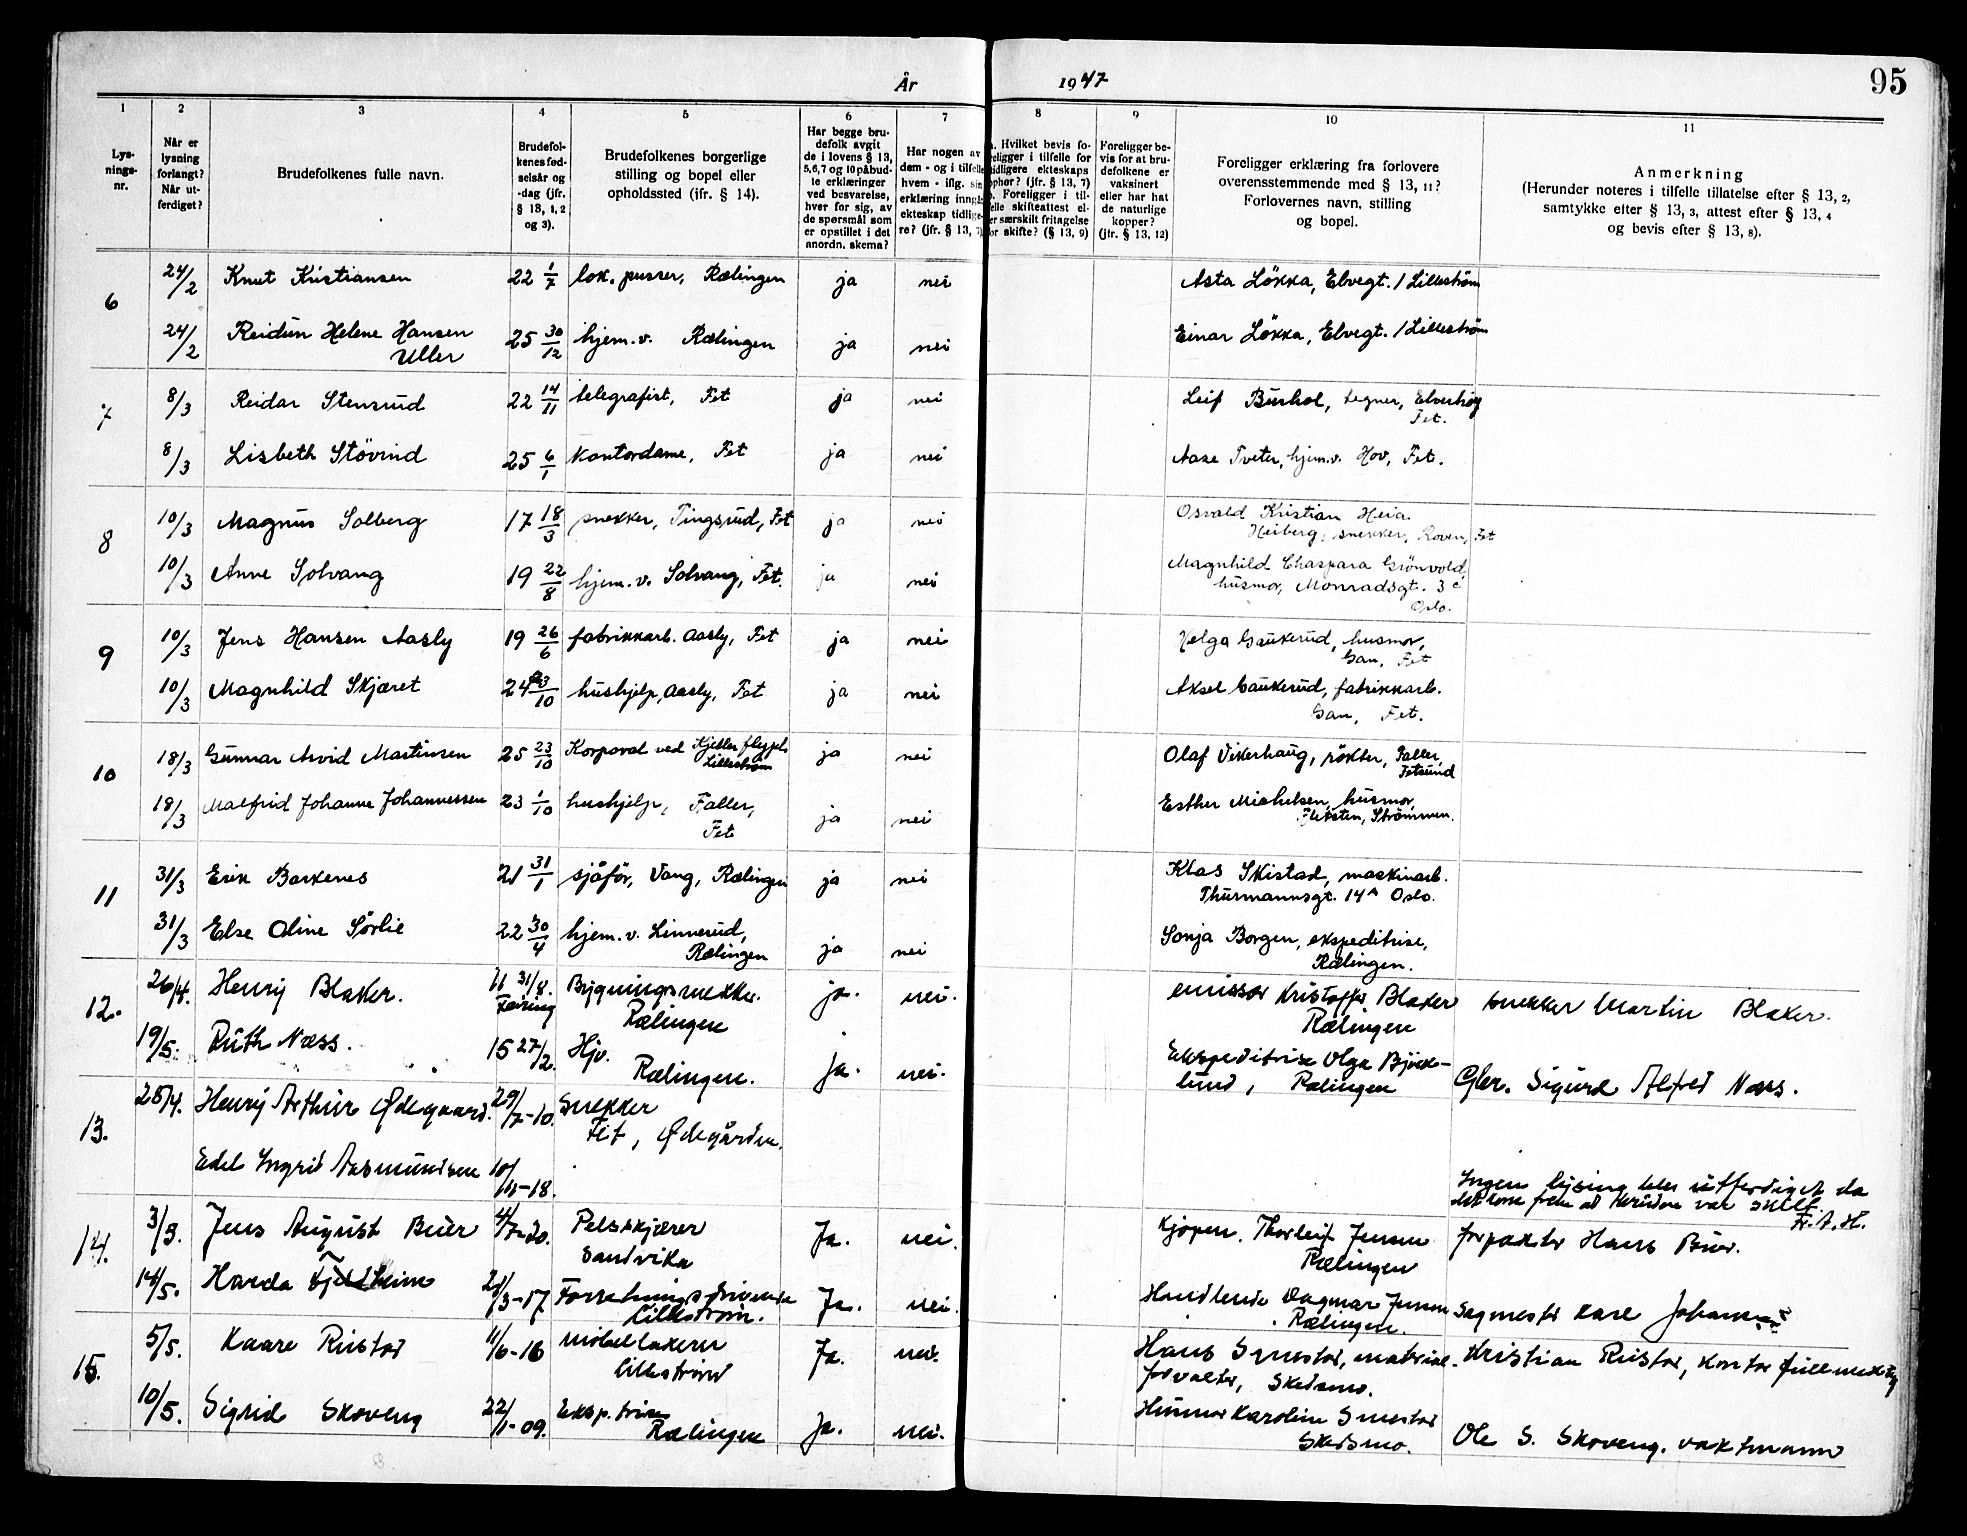 År 1947
95
1 2 3 4 5 6 7 8 9 10 11
Lys-
nings-
nr.
Når er
lysning
forlangt?
Når ut-
ferdiget?
Brudefolkenes fulle navn.
Brudefol-
kenes fød-
selsår og
-dag (jfr.
§ 13, 1, 2
og 3).
Brudefolkenes borgerlige
stilling og bopel eller
opholdssted (ifr. § 14).
Har begge bru-
defolk avgit
de i lovens § 13,
5,6,7 og 10 påbud-
te erklæringer
ved besvarelse,
hver for sig, av
de spørsmål som
er opstillet i det
anordn. skema?
Har nogen av
dem - og i tilfelle
hvem - iflg. sin
erklæring inngå
ekteskap tidlige
re? (jfr. § 13, 7)
a. Hvilket bevis fo-
religger i tilfelle for
tidligere ekteskaps
ophør? (jfr. § 13, 7)
b. Foreligger i til-
felle skifteattest el-
ler særskilt fritagelse
for skifte? (§ 13, 9)
Foreligger be-
vis for at bru-
defolkene er
vaksinert
eller har hat
de naturlige
kopper?
(jfr. § 13, 12)
Foreligger erklæring fra forlovere
overensstemmende med § 13, 11?
Forlovernes navn, stilling
og bopel.
Anmerkning
(Herunder noteres i tilfelle tillatelse efter § 13, 2,
samtykke efter § 13, 3, attest efter § 13, 4
og bevis efter § 13, 8).
6 24/2 Knut Kristiansen 22 1/7 lok. pusser, Rælingen ja nei Asta Lökka, Elvegt. 1 Lillestrøm
24/2 Reidun Helene Hansen 25 30/12 hjem.v. Rælingen ja nei Einar Lökka, Elvegt. 1 Lillestrøm
Uller
7 8/3 Reidar Stensrud 22 14/11 telegrafist, Fet ja nei Leif Burhol, tegner, Elverhøy
Fet.
8/3 Lisbeth Stövind 25 6/1 kontordame, Fet ja nei Aase Tveter, hjem.v. Hov, Fet.
8 10/3 Magnus Solberg 17 18/3 snekker, Tingsrud, Fet ja nei Osvald Kristian Heia
Heiberg, snekker, Roven, Fet
10/3 Anne Solvang 19 22/8 hjem.v. Solvang, Fet. ja nei Magnhild Chaspara Grönvold,
husmor, Monradsgt. 3 c
Oslo.
9 10/3 Jens Hansen Aasly 19 26/6 fabrikkarb. Aasly, Fet ja nei Helga Gaukerud, husmor,
Gan, Fet
10/3 Magnhild Skjæret 24 23/10 hushjelp, Aasly, Fet ja nei Aksel Gaukerud, fabrikkarb.
Gan, Fet.
10 18/3 Gunnar Arvid Martinsen 25 23/10 Korporal ved Kjeller flypl. ja nei Olaf Vikerhaug, røkter, Faller,
Lillestrøm Fetsund
18/3 Malfrid Johanne Johannessen 23 1/10 hushjelp, Faller, ja nei Esther Michelsen, husmor,
Fet Fleksten, Strömmen.
11 31/3 Erik Barkenes 21 31/1 sjåför, Vang, Rælingen ja nei Klas Skistad, maskinarb.
Thurmannsgt. 14 A Oslo.
31/3 Else Oline Sörlie 22 30/4 hjem.v. Linnerud, ja nei Sonja Borgen, ekspeditrise,
Rælingen Rælingen.
12. 26/4. Henry Blaker. 11 31/8. Bygningssnekker. ja. nei. emissær Kristoffer Blaker snekker Martin Blaker.
Feiring Rælingen Rælingen
19/5. Ruth Næss. 15 27/2. Hjv. ja. nei. Ekspeditrise Olga Björk-
Rælingen. lund, Rælingen Gbr. Sigurd Alfred Næss.
13. 25/4. Henry Arthur Ødegaard. 29/7-10. Snekker
Fet, Ødegården.
Edel Ingrid Aasmundsen 10/11-18.
Ingen lysing blev utferdiget da
det kom frem at bruden var skilt.
Fr. A. H.
14. 3/5. Jens August Buer 4/7-20. Pelsskjærer Ja. nei. Kjøpm. Thorleif Jensen forpakter Hans Buer.
Sandvika Rælingen
14/5. Harda Fjeldheim 21/3-17 Forretningsdrivende Ja. nei. Handlende Dagmar Jensen Sagmester Karl Johannes
Lillestrøm. Rælingen.
15. 5/5. Kaare Rustad 11/6-16 Møbellakerer Ja. nei. Hans Smestad, material- Kristian Rustad, kontorfullmektig
Lillestrøm forvalter, Skedsmo.
10/5. Sigrid Skoveng 22/1-09. Eksp.trise Ja. nei. Husmor Karoline Smestad
Rælingen Skedsmo. Ole S. Skoveng. vaktmann